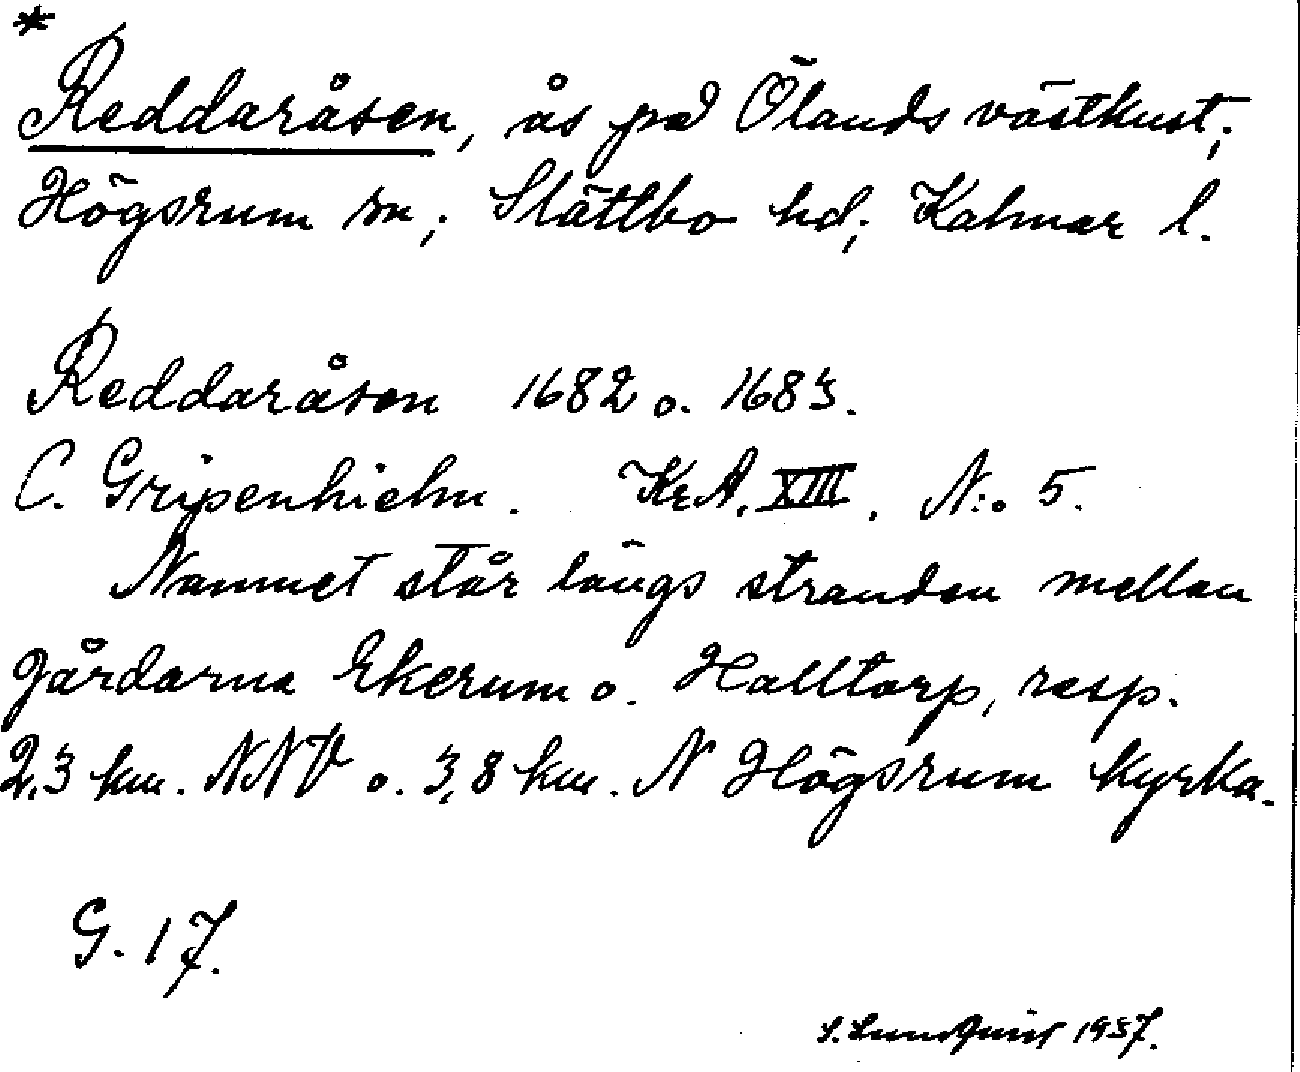 *
Reddaråsen, ås på Ölands västkust;
Högsrum sn; Slättbo hd; Kalmar l.
Reddaråsen 1682 o. 1683.
C. Gripenhielm. KrA. XIII. N:o 5.
Namnet står längs stranden mellan
gårdarna Ekerum o. Halltorp, resp.
2,3 km. NNV o. 3,8 km. N Högsrum kyrka.
G. 17.
S. Lundquist 1937.